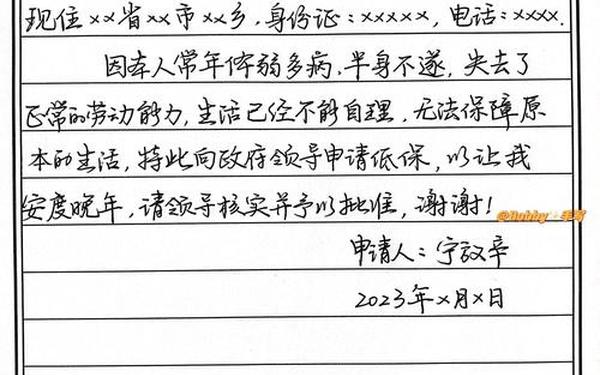 现住××省××市××乡,身份证:×××××,电话:××××.
因本人常年体弱多病,半身不遂,失去了
正常的劳动能力,生活已经不能自理,无法保障原
本的生活,特此向政府领导申请低保,以让我
安度晚年,请领导核实并予以批准,谢谢!
@Bobby·手写
申请人:宁致辛
2023年×月×日